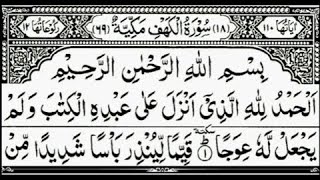 اٰیَاتُهَا ١١٠ (١٨) سُوْرَةُ الْكَهْفِ مَكِّیَّةٌ (٦٩) رُكُوْعَاتُهَا ١٢
بِسْمِ اللّٰهِ الرَّحْمٰنِ الرَّحِیْمِ
اَلْحَمْدُ لِلّٰهِ الَّذِیْۤ اَنْزَلَ عَلٰی عَبْدِهِ الْكِتٰبَ وَ لَمْ
یَجْعَلْ لَّهٗ عِوَجًا ؕ سكتة ۝١ قَیِّمًا لِّیُنْذِرَ بَاْسًا شَدِیْدًا مِّنْ